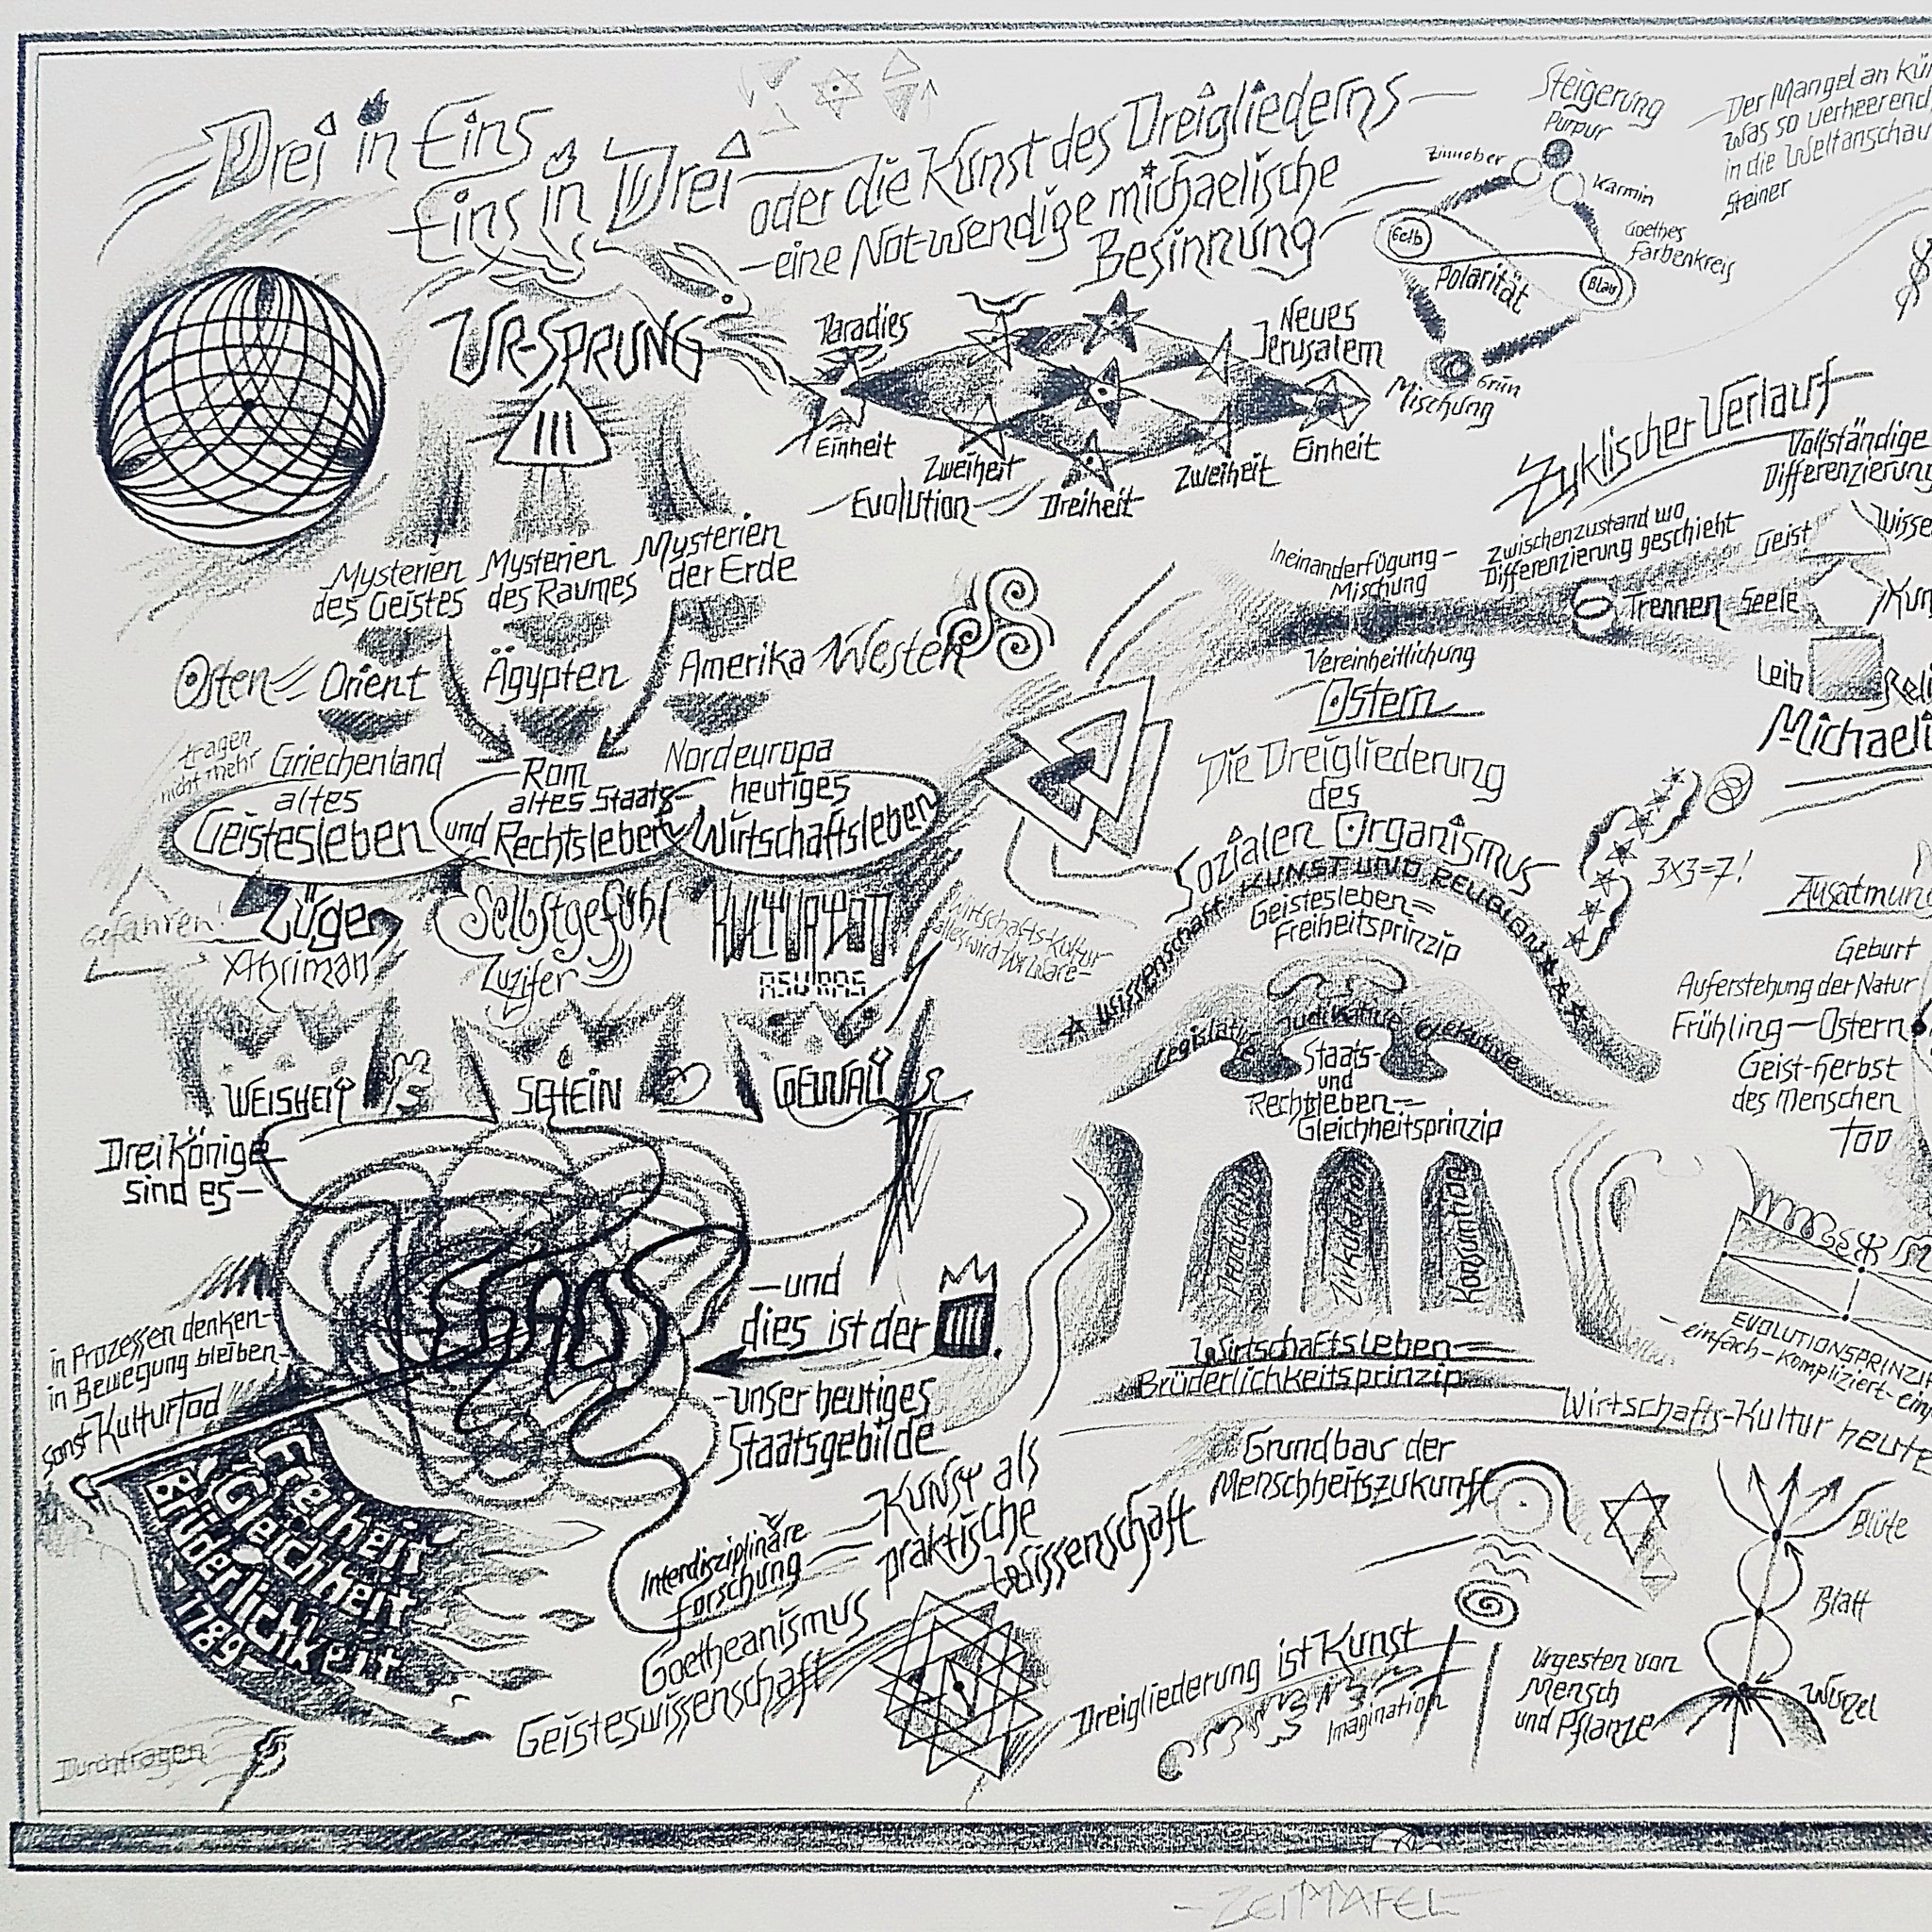 Drei in Eins
Eins in Drei
oder die Kunst des Dreigliederns
– eine Not-wendige michaelische
Besinnung
Steigerung
Purpur
Zinnober
Karmin
Gelb
Blau
Goethes
Farbenkreis
Polarität
Grün
Mischung
Der Mangel an
was so verheerend
in die Weltanschau
Steiner
UR-SPRUNG
Paradies
Neues
Jerusalem
Einheit
Zweiheit
Dreiheit
Zweiheit
Einheit
Evolution
Zyklischer Verlauf
Vollständige
Differenzierung
Zwischenzustand wo
Differenzierung geschieht
Ineinanderfügung –
Mischung
Vereinheitlichung
Ostern
Trennen
Geist
Seele
Leib
Wisse
Kun
Reli
Michaeli
Mysterien
des Geistes
Mysterien
des Raumes
Mysterien
der Erde
Osten
Orient
Ägypten
Amerika
Westen
tragen
nicht mehr
Griechenland
altes
Geistesleben
Rom
altes Staats-
und Rechtsleben
Nordeuropa
heutiges
Wirtschaftsleben
Gefahren!
Lüge
Ahriman
Selbstgefühl
Luzifer
KULTURTOD
ASURAS
Wirtschafts-Kultur
alles wird zur Ware –
WEISHEIT
SCHEIN
GEWALT
Drei Könige
sind es –
CHAOS
– und
dies ist der
– unser heutiges
Staatsgebilde
in Prozessen denken –
in Bewegung bleiben –
sonst KulturTod
Freiheit
Gleichheit
Brüderlichkeit
– 1789 –
Durchtragen
Interdisziplinäre
Forschung
Kunst als
praktische
Wissenschaft
Goetheanismus
Geisteswissenschaft
Die Dreigliederung
des
Sozialen Organismus
Wissenschaft KUNST UND RELIGION
Geistesleben =
Freiheitsprinzip
Legislative Judikative Exekutive
Staats-
und
Rechtsleben =
Gleichheitsprinzip
Produktion
Zirkulation
Konsumtion
Wirtschaftsleben =
Brüderlichkeitsprinzip
3x3=7!
Ausatmung
Geburt
Auferstehung der Natur
Frühling – Ostern
Geist-Herbst
des Menschen
TOD
EVOLUTIONSPRINZIP
– einfach – kompliziert – ein
Wirtschafts-Kultur heute
Grundbau der
Menschheitszukunft
Dreigliederung ist Kunst
Imagination
Urgesten von
Mensch
und Pflanze
Blüte
Blatt
Wurzel
– ZEITTAFEL –